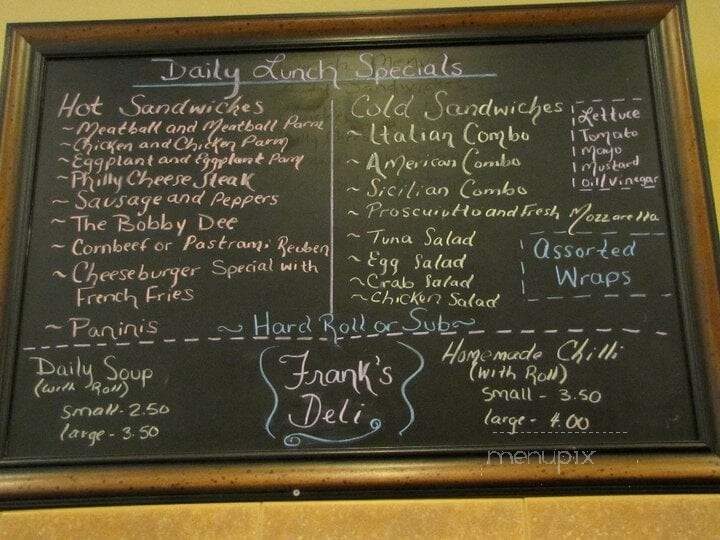 Daily Lunch Specials
Hot Sandwiches
~ Meatball and Meatball Parm
~ Chicken and Chicken Parm
~ Eggplant and Eggplant Parm
~ Philly Cheese Steak
~ Sausage and Peppers
~ The Bobby Dee
~ Cornbeef or Pastrami Reuben
~ Cheeseburger Special with
French Fries
~ Paninis
Cold Sandwiches
~ Italian Combo
~ American Combo
~ Sicilian Combo
~ Proscuiutto and Fresh Mozzarella
~ Tuna Salad
~ Egg Salad
~ Crab Salad
~ Chicken Salad
Lettuce
Tomato
Mayo
Mustard
Oil/Vinegar
Assorted
Wraps
~ Hard Roll or Sub ~
Daily Soup
(with Roll)
small - 2.50
large - 3.50
Frank's
Deli
Homemade Chilli
(with Roll)
small - 3.50
large - 4.00
menupix